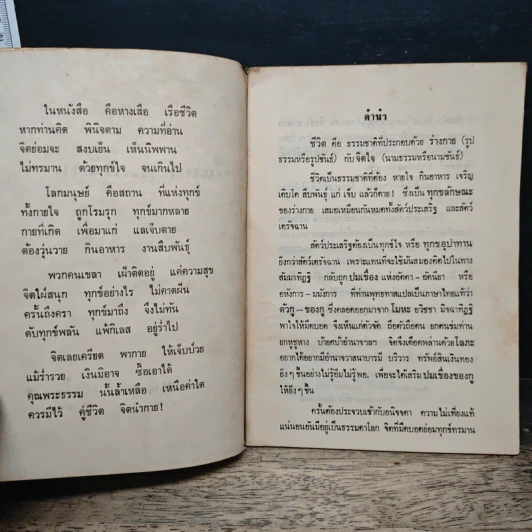 ในหนังสือ คือหางเสือ เรือชีวิต
หากท่านคิด พินิจตาม ความที่อ่าน
จิตย่อมจะ สงบเย็น เห็นนิพพาน
ไม่ทรมาน ด้วยทุกข์ใจ จนเกินไป
โลกมนุษย์ คือสถาน ที่แห่งทุกข์
ทั้งกายใจ ถูกโรมรุก ทุกข์มากหลาย
กายที่เกิด เพื่อมาแก่ แลเจ็บตาย
ต้องวุ่นวาย กินอาหาร งานสืบพันธุ์
พวกคนเขลา เฝ้าติดอยู่ แค่ความสุข
จิตใฝ่สนุก ทุกข์อย่างไร ไม่คาดฝัน
ครั้นถึงครา ทุกข์มาถึง จึงไม่ทัน
ดับทุกข์พลัน แพ้กิเลส อยู่ร่ำไป
จิตเลยเครียด พากาย ให้เจ็บป่วย
แม้ร่ำรวย เงินมีอาจ ซื้อเอาได้
คุณพระธรรม นั้นล้ำเหลือ เหนือค่าใด
ควรมีไว้ คู่ชีวิต จิตนำกาย!
คำนำ
ชีวิต คือ ธรรมชาติที่ประกอบด้วย ร่างกาย (รูป
ธรรมหรือรูปขันธ์) กับ จิตใจ (นามธรรมหรือนามขันธ์)
ชีวิตเป็นธรรมชาติที่ต้อง หายใจ กินอาหาร เจริญ
เติบโต สืบพันธุ์ แก่ เจ็บ แล้วก็ตาย! ซึ่งเป็น ทุกขลักษณะ
ของร่างกาย เสมอเหมือนกันหมดทั้งสัตว์ประเสริฐ และสัตว์
เดรัจฉาน
สัตว์ประเสริฐต้องเป็นทุกข์ใจ หรือ ทุกขอุปาทาน
ยิ่งกว่าสัตว์เดรัจฉาน เพราะแทนที่จะใช้มันสมองคิดไปในทาง
สัมมาทิฏฐิ กลับถูกปมเขื่อง แห่งอัตตา - อัตนียา หรือ
อหังการ - มมังการ ที่ท่านพุทธทาสแปลเป็นภาษาไทยแท้ว่า
ตัวกู - ของกู ซึ่งคลอดออกมาจาก โมหะ อวิชชา มิจฉาทิฏฐิ
พาใจให้มืดบอด จึงเห็นแก่ตัวจัด ถือตัวถือตน ยกตนข่มท่าน
ยกหูชูหาง บ้ายศบ้าอำนาจฯลฯ จิตจึงเดือดพล่านด้วยโลภะ
อยากได้อยากมีอำนาจวาสนาบารมี บริวาร ทรัพย์สินเงินทอง
ยิ่งๆ ขึ้นอย่างไม่รู้อิ่มไม่รู้พอ, เพื่อจะได้เสริมปมเขื่องของกู
ให้ยิ่งๆ ขึ้น
ครั้นต้องประจวบเข้ากับอนิจจตา ความไม่เที่ยงแท้
แน่นอนอันมีอยู่เป็นธรรมดาโลก จิตที่มืดบอดย่อมทุกข์ทรมาน